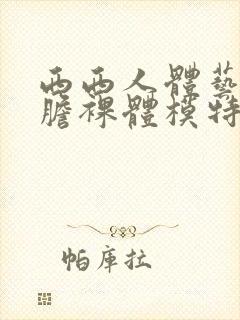 西西人體藝
膽裸體模特
帕庫拉